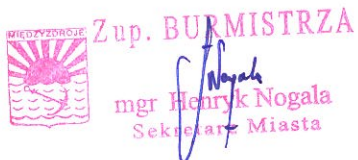 MIĘDZYZDROJE
Z up. BURMISTRZA
Nogala
mgr Henryk Nogala
Sekretarz Miasta